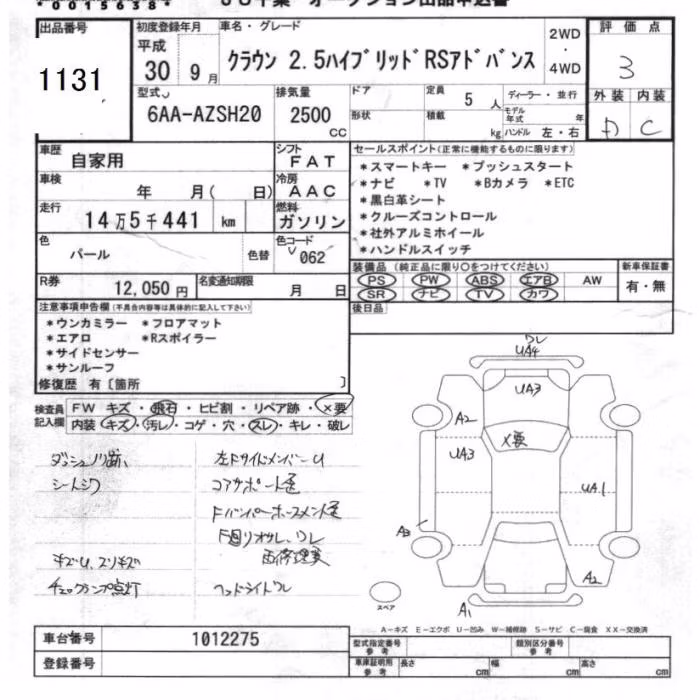 *0015638*
出品番号
1131
初度登録年月
平成
30 9月
車名・グレード
クラウン 2.5ハイブリッドRSアドバンス
2WD
・
4WD
評価点
3
外装 内装
D C
型式
6AA-AZSH20
排気量
2500
CC
ドア
形状
定員 5 人
積載 kg
ディーラー・並行
モデル年式 年
ハンドル 左・右
車歴
自家用
シフト
FAT
車検
年 月( 日)
冷房
AAC
走行
14万5千441 km
燃料
ガソリン
色
パール
色替
色コード
062
R券
12,050円
名変通知期限
月 日
セールスポイント(正常に機能するものに限ります)
*スマートキー *プッシュスタート
*ナビ *TV *Bカメラ *ETC
*黒白革シート
*クルーズコントロール
*社外アルミホイール
*ハンドルスイッチ
装備品(純正品に限り○をつけてください)
PS PW ABS エアB AW
SR ナビ TV カワ
新車保証書
有・無
後日品
注意事項申告欄(不具合内容等は具体的に記入して下さい)
*ウンカミラー *フロアマット
*エアロ *Rスポイラー
*サイドセンサー
*サンルーフ
修復歴 有〔箇所 〕
検査員
記入欄
FW キズ・飛石・ヒビ割・リペア跡・×要
内装 キズ・汚レ・コゲ・穴・スレ・キレ・破レ
ダッシュノリ跡、
シートシワ
キズU、スリキズ
チェックランプ点灯
左Fサイドメンバー U
コアサポート歪
ヘッドライトズレ
ズレ
UA4
UA3
A2
×要
UA3
UA1
A3
A2
A1
スペア
A－キズ E－エクボ U－凹み W－補修跡 S－サビ C－腐食 XX－交換済
車台番号
1012275
登録番号
型式指定番号
参考
類別区分番号
参考
車庫証明用
参考
長さ cm
幅 cm
高さ cm